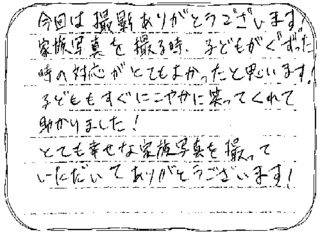 今回は撮影ありがとうございます!
家族写真を撮る時、子どもがぐずった
時の対応がとてもよかったと思います!
子どももすぐにこやかに笑ってくれて
助かりました!
とても幸せな家族写真を撮って
いただいてありがとうございます!